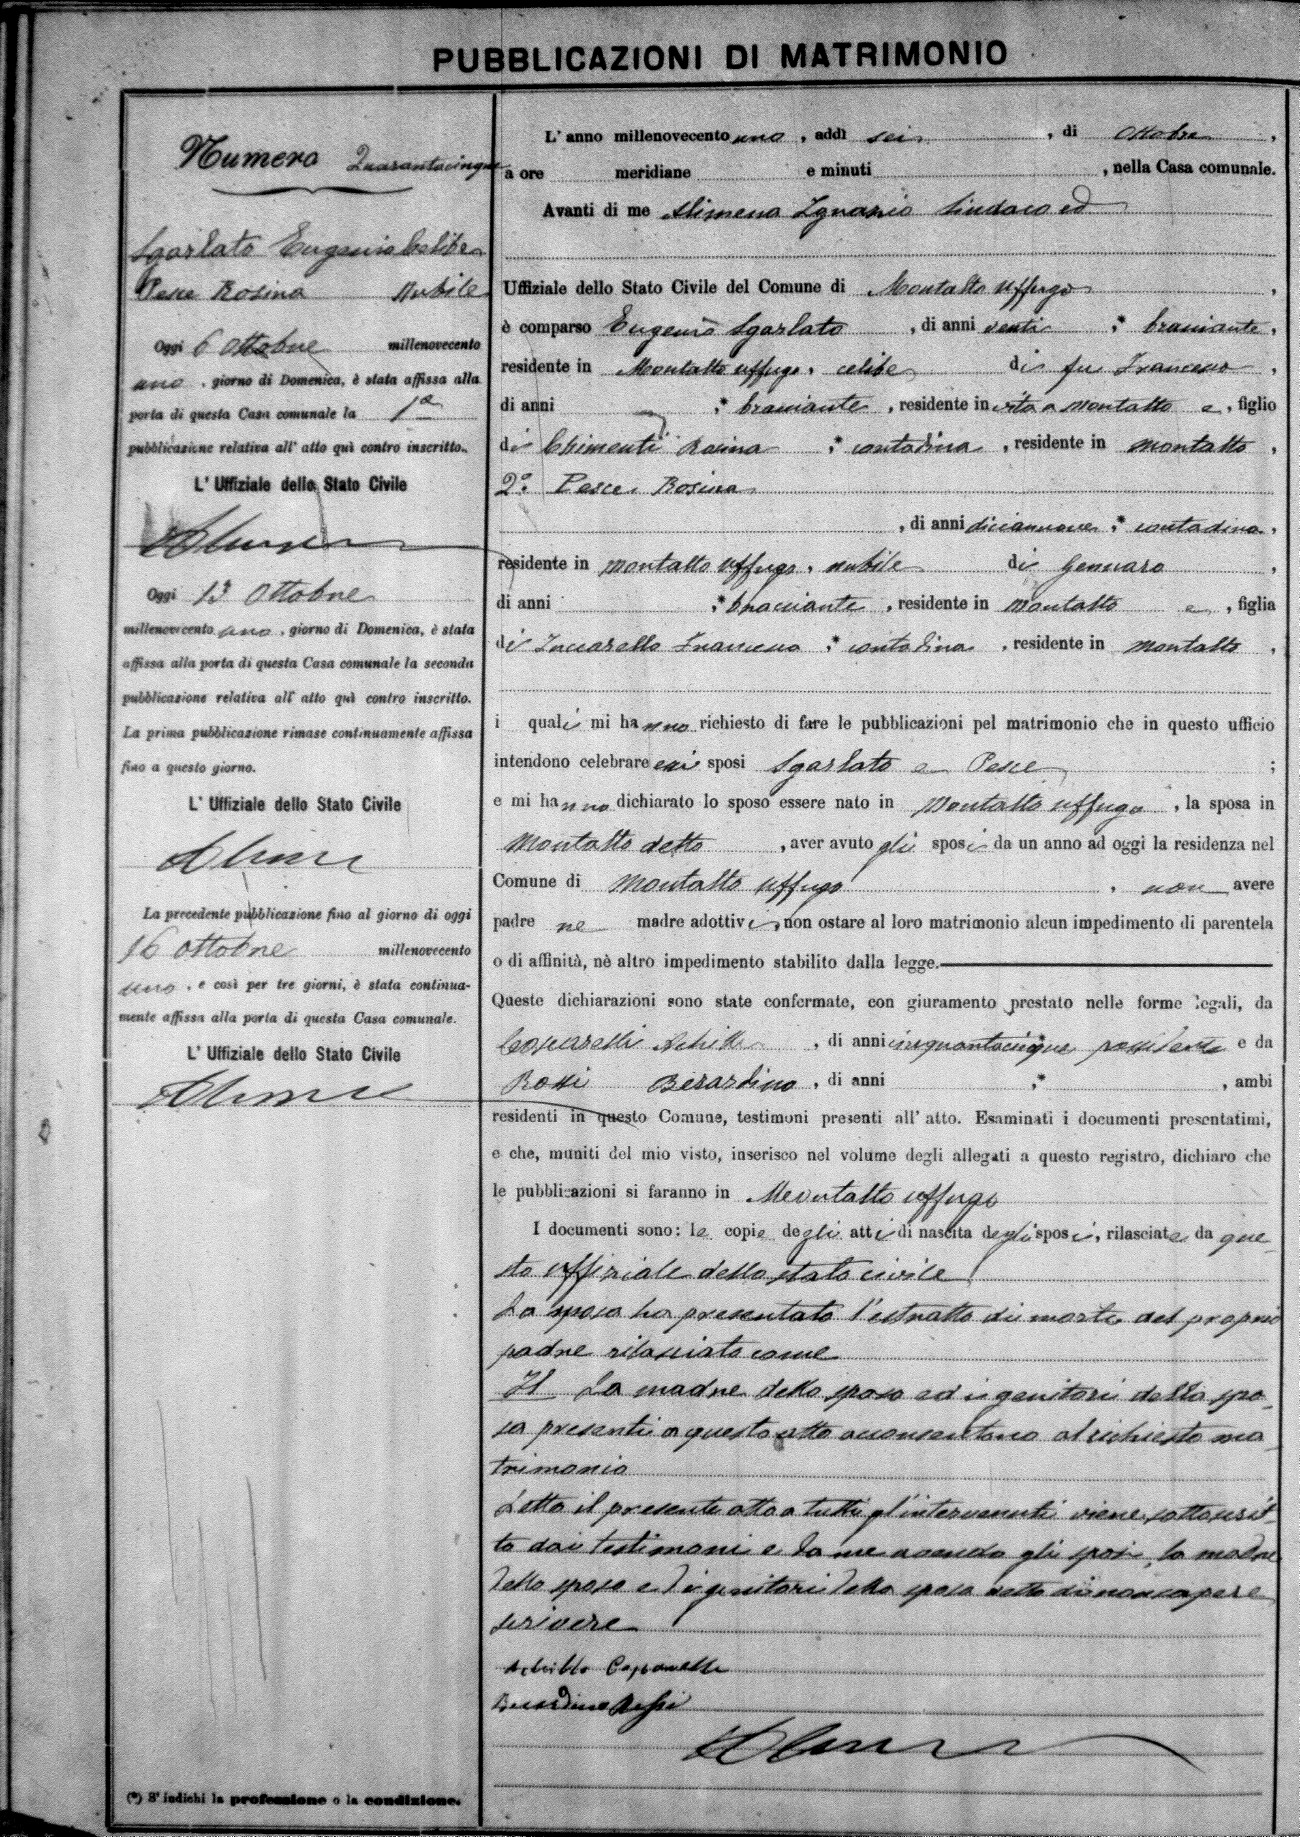 PUBBLICAZIONI DI MATRIMONIO
Numero Quarantacinque
Sgarlato Eugenio Celibe
Pesce Rosina Nubile
Oggi 6 Ottobre millenovecento
uno, giorno di Domenica, è stata affissa alla
porta di questa Casa comunale la 1ª
pubblicazione relativa all' atto quì contro inscritto.
L' Uffiziale dello Stato Civile
Oggi 13 Ottobre
millenovecento uno, giorno di Domenica, è stata
affissa alla porta di questa Casa comunale la seconda
pubblicazione relativa all' atto quì contro inscritto.
La prima pubblicazione rimase continuamente affissa
fino a questo giorno.
L' Uffiziale dello Stato Civile
La precedente pubblicazione fino al giorno di oggi
16 Ottobre millenovecento
uno, e così per tre giorni, è stata continua-
mente affissa alla porta di questa Casa comunale.
L' Uffiziale dello Stato Civile
(*) S' indichi la professione o la condizione.
L' anno millenovecento uno, addì sei, di Ottobre,
a ore meridiane e minuti, nella Casa comunale.
Avanti di me Alimena Ignazio Sindaco ed
Uffiziale dello Stato Civile del Comune di Montalto Uffugo,
è comparso Eugenio Sgarlato, di anni venti, * bracciante,
residente in Montalto Uffugo, celibe di fu Francesco,
di anni, * bracciante, residente in vita a Montalto e, figlio
di Chimenti Rosina, * contadina, residente in Montalto,
2º Pesce Rosina
, di anni diciannove, * contadina,
residente in Montalto Uffugo, nubile di Gennaro,
di anni, * bracciante, residente in Montalto e, figlia
di Zuccarello Francesca, * contadina, residente in Montalto,
i quali mi hanno richiesto di fare le pubblicazioni pel matrimonio che in questo ufficio
intendono celebrare essi sposi Sgarlato e Pesce;
e mi hanno dichiarato lo sposo essere nato in Montalto Uffugo, la sposa in
Montalto detto, aver avuto gli sposi da un anno ad oggi la residenza nel
Comune di Montalto Uffugo, non avere
padre ne madre adottivi, non ostare al loro matrimonio alcun impedimento di parentela
o di affinità, nè altro impedimento stabilito dalla legge.
Queste dichiarazioni sono state confermate, con giuramento prestato nelle forme legali, da
Caparelli Achille, di anni cinquantacinque possidente e da
Rossi Berardino, di anni *, ambi
residenti in questo Comune, testimoni presenti all' atto. Esaminati i documenti presentatimi,
e che, muniti del mio visto, inserisco nel volume degli allegati a questo registro, dichiaro che
le pubblicazioni si faranno in Montalto Uffugo
I documenti sono: le copie degli atti di nascita degli sposi, rilasciate da que-
sto uffiziale dello stato civile
La sposa ha presentato l'estratto di morte del proprio
padre rilasciato come
La madre dello sposo ed i genitori della spo-
sa presenti a questo atto acconsentano al richiesto ma-
trimonio
Letto il presente atto a tutti gl'intervenuti viene sottoscrit-
to dai testimoni e da me avendo gli sposi, la madre
dello sposo ed i genitori della sposa detto di non sapere
scrivere
Achille Caparelli
Berardino Rossi